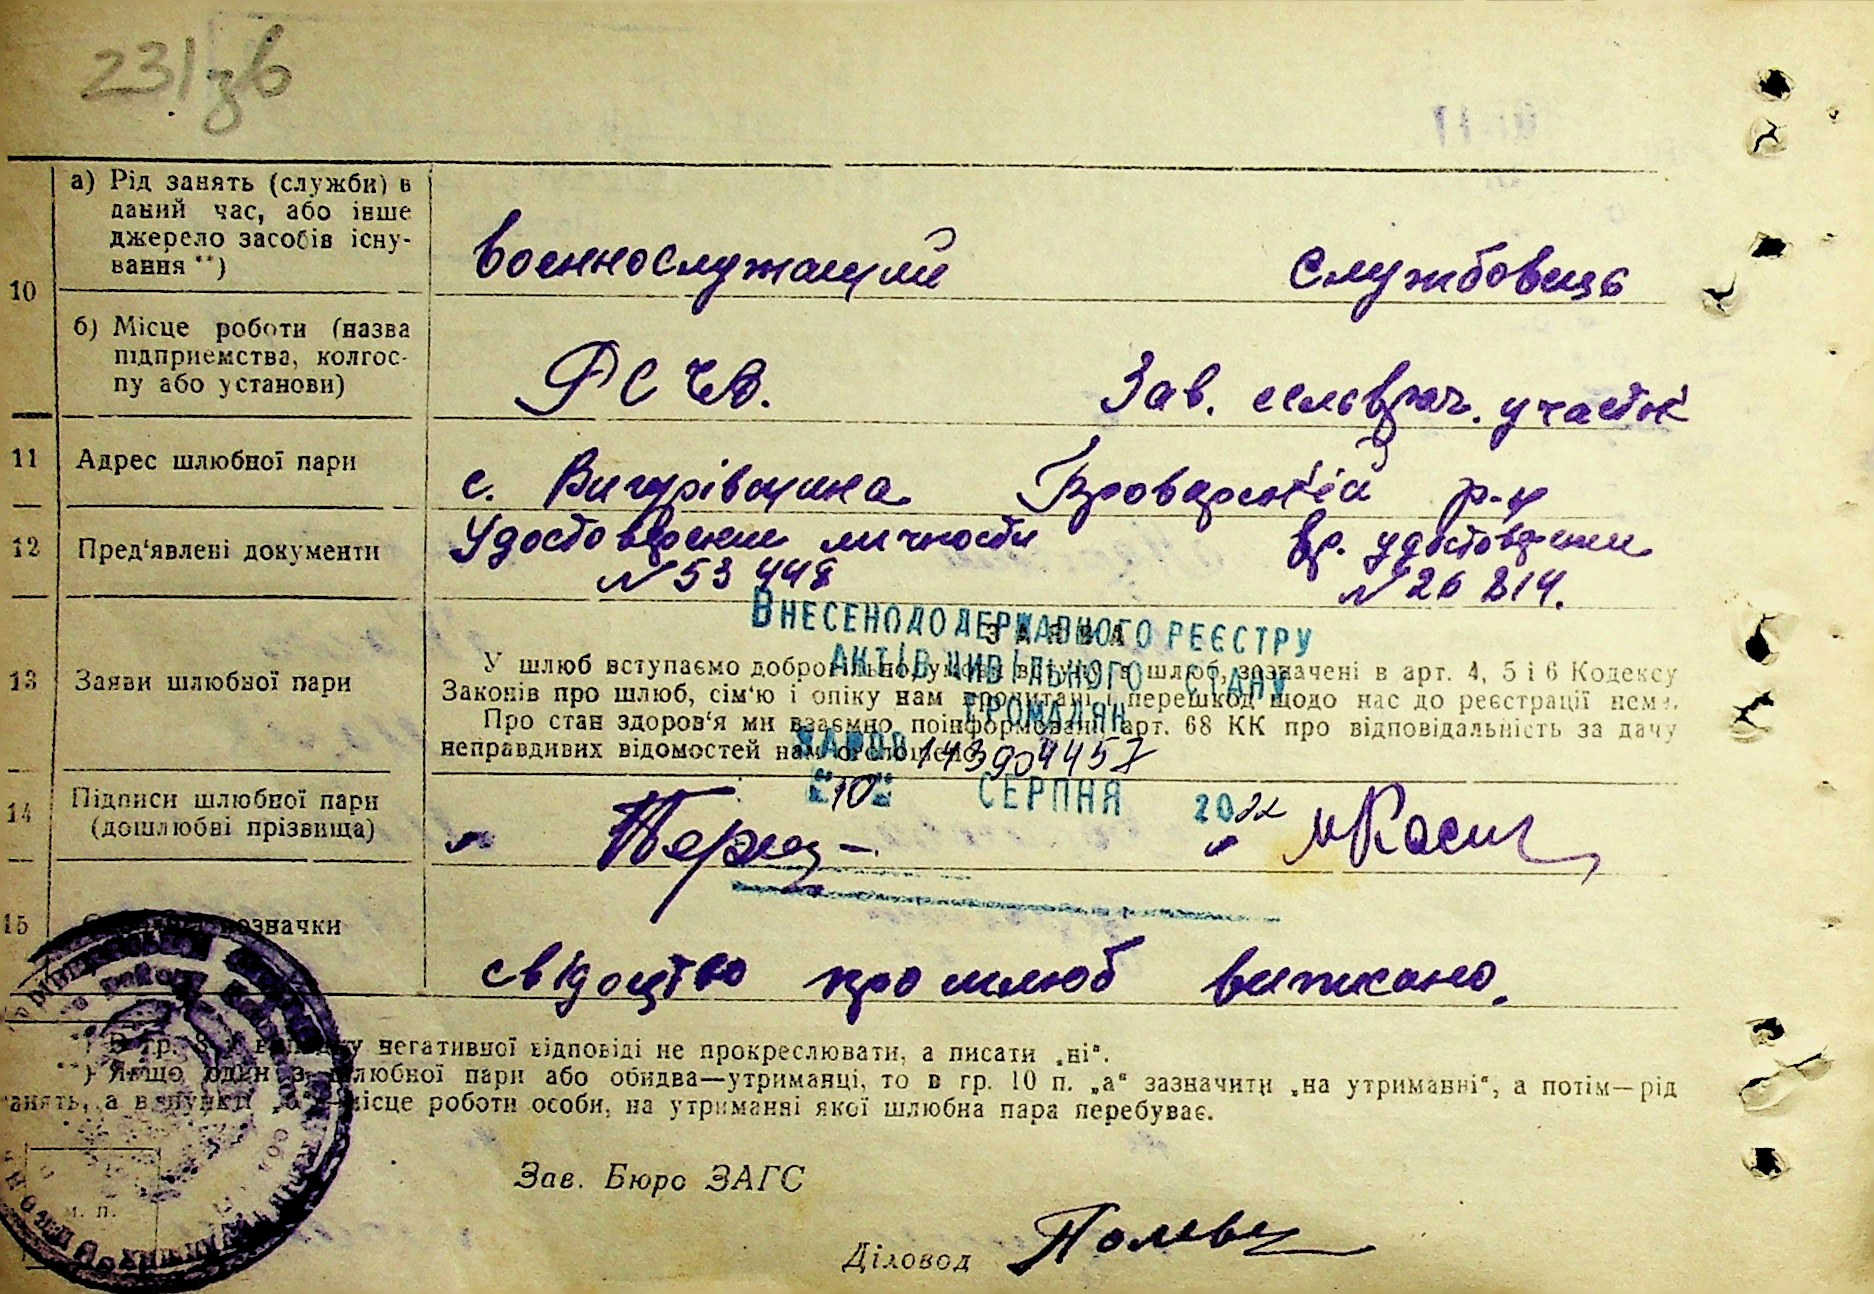 231 зв
10
а) Рід занять (служби) в
даний час, або інше
джерело засобів існу-
вання **)
военнослужащий службовець
б) Місце роботи (назва
підприємства, колгос-
пу або установи)
Зав. участк
11 Адрес шлюбної пари
с. Вигурівщина Броварський р-н
12 Пред'явлені документи
Удостоверение личности вр. удостоверение
№ 53 448 № 26 814.
ВНЕСЕНО ДО ДЕРЖАВНОГО РЕЄСТРУ
АКТІВ ЦИВІЛЬНОГО СТАНУ
ГРОМАДЯН
143904457
"10" СЕРПНЯ 2022
ЗАЯВА
13 Заяви шлюбної пари
У шлюб вступаємо добровільно, умови вступу в шлюб, зазначені в арт. 4, 5 і 6 Кодексу
Законів про шлюб, сім'ю і опіку нам прочитані і перешкод щодо нас до реєстрації нема.
Про стан здоров'я ми взаємно поінформовані арт. 68 КК про відповідальність за дачу
неправдивих відомостей нам оголошено.
14 Підписи шлюбної пари
(дошлюбні прізвища)
15 возначки
свідоцтво про шлюб
*) В гр. 8 у випадку негативної відповіді не прокреслювати, а писати „ні“.
**) Якщо один з шлюбної пари або обидва—утриманці, то в гр. 10 п. „а“ зазначити „на утриманні“, а потім—рід
занять, а в пункті „б“—місце роботи особи, на утриманні якої шлюбна пара перебуває.
м. п.
Зав. Бюро ЗАГС
Діловод